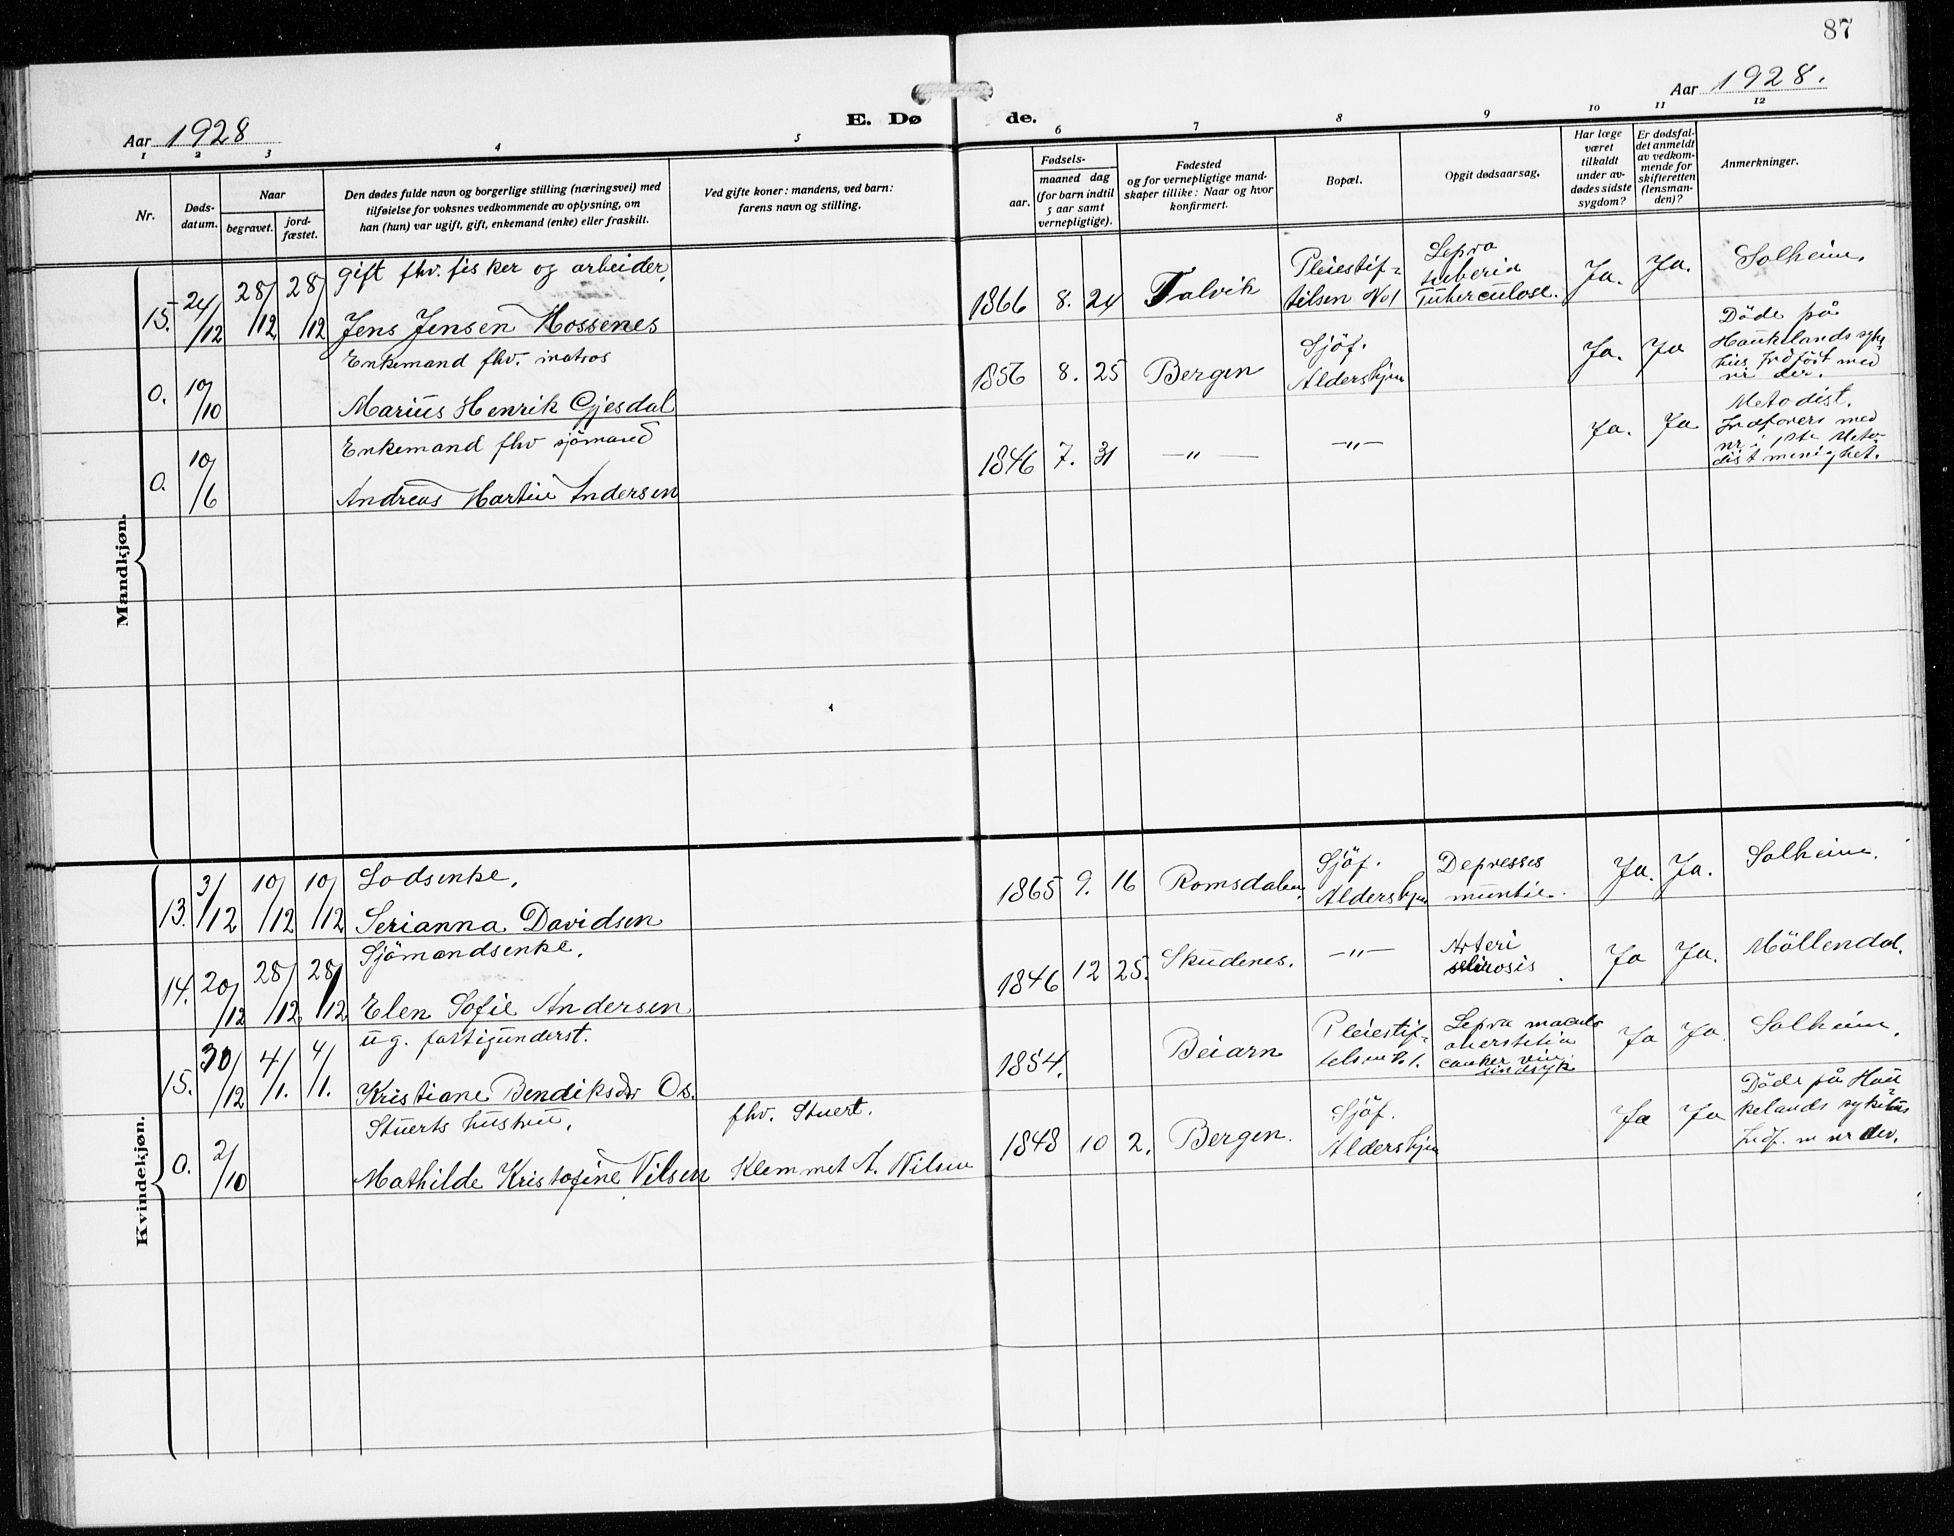 87
Aar 1928
E. Dø de.
Aar 1928.
1 2 3 4 5 6 7 8 9 10 11 12
Nr.
Døds-
datum.
Naar
begravet.
jord-
fæstet.
Den dødes fulde navn og borgerlige stilling (næringsvei) med
tilføielse for voksnes vedkommende av oplysning, om
han (hun) var ugift, gift, enkemand (enke) eller fraskilt.
Ved gifte koner: mandens, ved barn:
farens navn og stilling.
Fødsels-
aar.
maaned dag
(for barn indtil
5 aar samt
vernepligtige).
Fødested
og for vernepligtige mand-
skaper tillike: Naar og hvor
konfirmert.
Bopæl.
Opgit dødsaarsag.
Har læge
været
tilkaldt
under av-
dødes sidste
sygdom?
Er dødsfal-
det anmeldt
av vedkom-
mende for
skifteretten
(lensman-
den)?
Anmerkninger.
Mandkjøn.
gift fhv. fisker og arbeider,
15. 24/12 28/12 28/12 Jens Jensen Mossenes
1866 8. 24 Talvik
Pleiestif-
telsen No 1
Lepra
tuberia
Tuberculose.
Ja. Ja. Solheim.
Enkemand fhv. matros
0. 10/10 Marius Henrik Gjesdal
1856 8. 25 Bergen
Sjöf.
Aldershjem
Ja. Ja
Döde på
Haukelands syke-
hus Indfört med
nr der.
Enkemand fhv sjömand
0. 10/6 Andreas Martin Andersen
1846 7. 31 — " — — " —
Ja. Ja
Metodist.
Indföres med
nr i 1ste Meto-
dist menighet.
Kvindekjøn.
Lodsenke,
13. 3/12 10/12 10/12 Serianna Davidsen
1865 9. 16 Romsdalen
Sjöf.
Aldershjem
Depresses
muntie.
Ja. Ja. Solheim.
Sjömandsenke,
14. 20/12 28/12 28/12 Elen Sofie Andersen
1846 12 25. Skudenes. — " —
Arteri
sklirosis
Ja Ja. Möllendal.
ug. fattigunderst.
15. 30/12 4/1. 4/1. Kristiane Bendiksdr Os.
1854. Beiarn
Pleiestif-
telsen No 1.
Lepra maculo
sindsyk
Ja Ja. Solheim.
Stuerts hustru,
0. 2/10 Mathilde Kristofine Nilsen
fhv. Stuert.
Klemmet A. Nilsen
1848 10 2. Bergen.
Sjöf.
Aldershjem
Ja Ja
Döde på Hau-
kelands sykehus
Indf. m nr der.